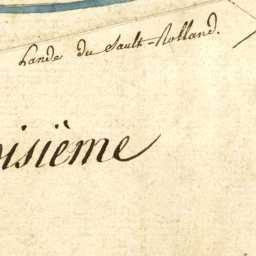 Lande du Sault-Rolland.
oisième